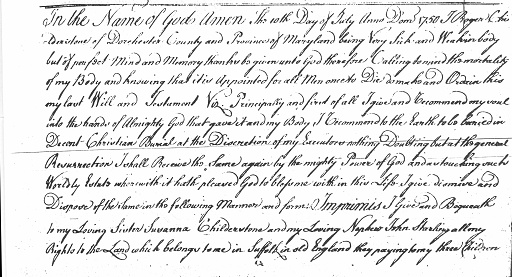 In the Name of God Amen The 10th Day of July Anno Dom 1750 I Roger Chil
derstone of Dorchester County and Province of Maryland being Very Sick and Weak in body
but of perfect Mind and Memory thanks be given unto God therefore Calling to mind the mortality
of my Body and knowing that it is Appointed for all Men once to Die do make and Ordain this
my last Will and Testament Viz Principaly and first of all I give and Recommend my soul
into the hands of Almighty God that gave it and my Body I recommend to the Earth to be buried in
Decent Christian Burial at the Discretion of my Executors nothing Doubting but at the general
Resurrection I shall Receive the same again by the mighty Power of God and as touching such
Worldly Estate wherewith it hath pleased God to bless me with in this Life I give demise and
Dispose of the same in the following Manner and form: Imprimis I Give and Bequeath
to my Loving Sister Susanna Childerstone and my Loving Nephew John Sterling all my
Rights to the Land which belongs to me in Suffolk in old England they paying to my three Children